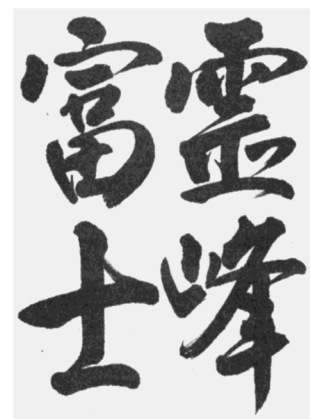 霊峰
富士